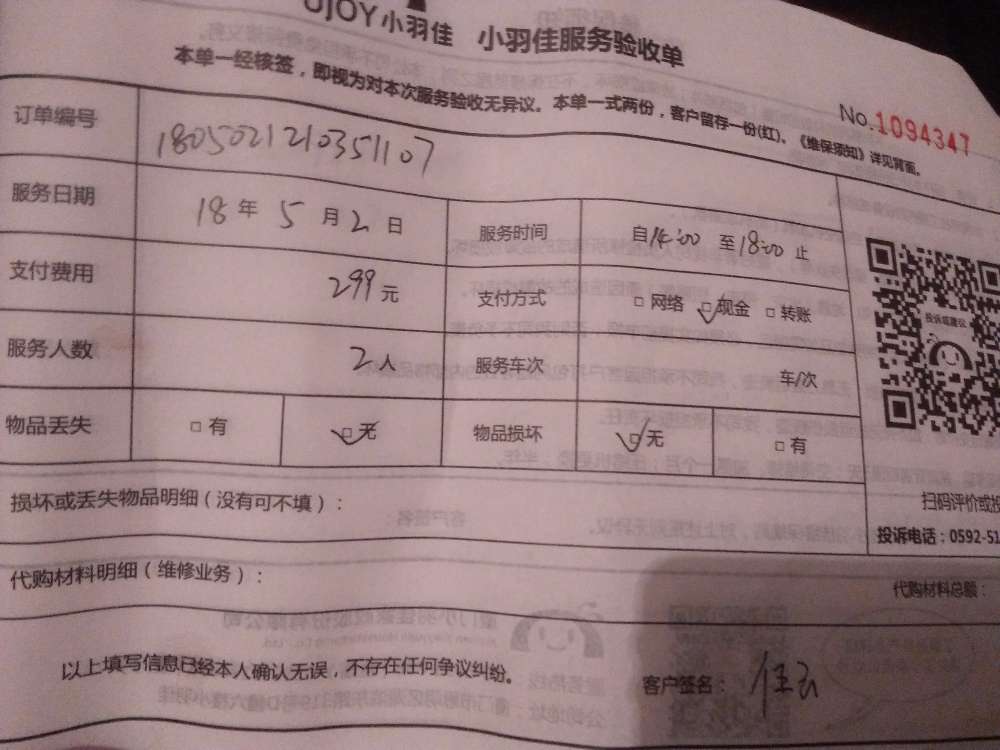 UJOY小羽佳 小羽佳服务验收单
本单一经核签，即视为对本次服务验收无异议。本单一式两份，客户留存一份(红)。《维保须知》详见背面。
No.1094347
订单编号 1805021210351107
服务日期 18年5月2日 服务时间 自14:00至18:00止
支付费用 299元 支付方式 □网络 ☑现金 □转账
服务人数 2人 服务车次 车/次
物品丢失 □有 ☑无 物品损坏 ☑无 □有
损坏或丢失物品明细（没有可不填）：
扫码评价或投
投诉电话：0592-51
代购材料明细（维修业务）：
代购材料总额：
以上填写信息已经本人确认无误，不存在任何争议纠纷。
客户签名：